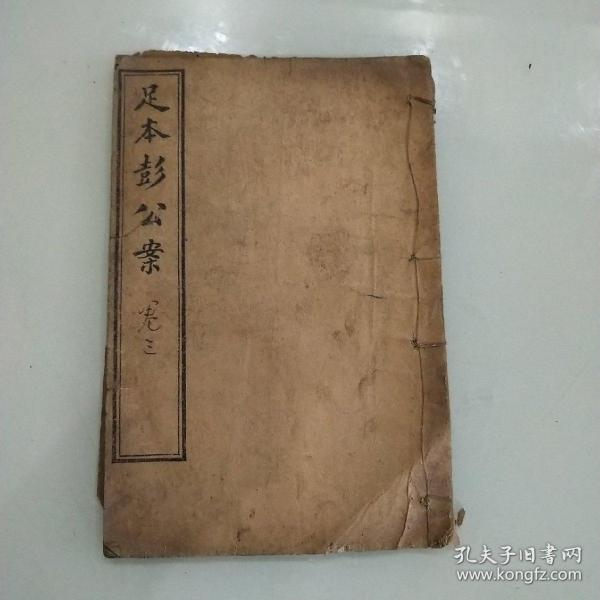 足本彭公案
卷三
孔夫子旧书网
www.kongfz.com